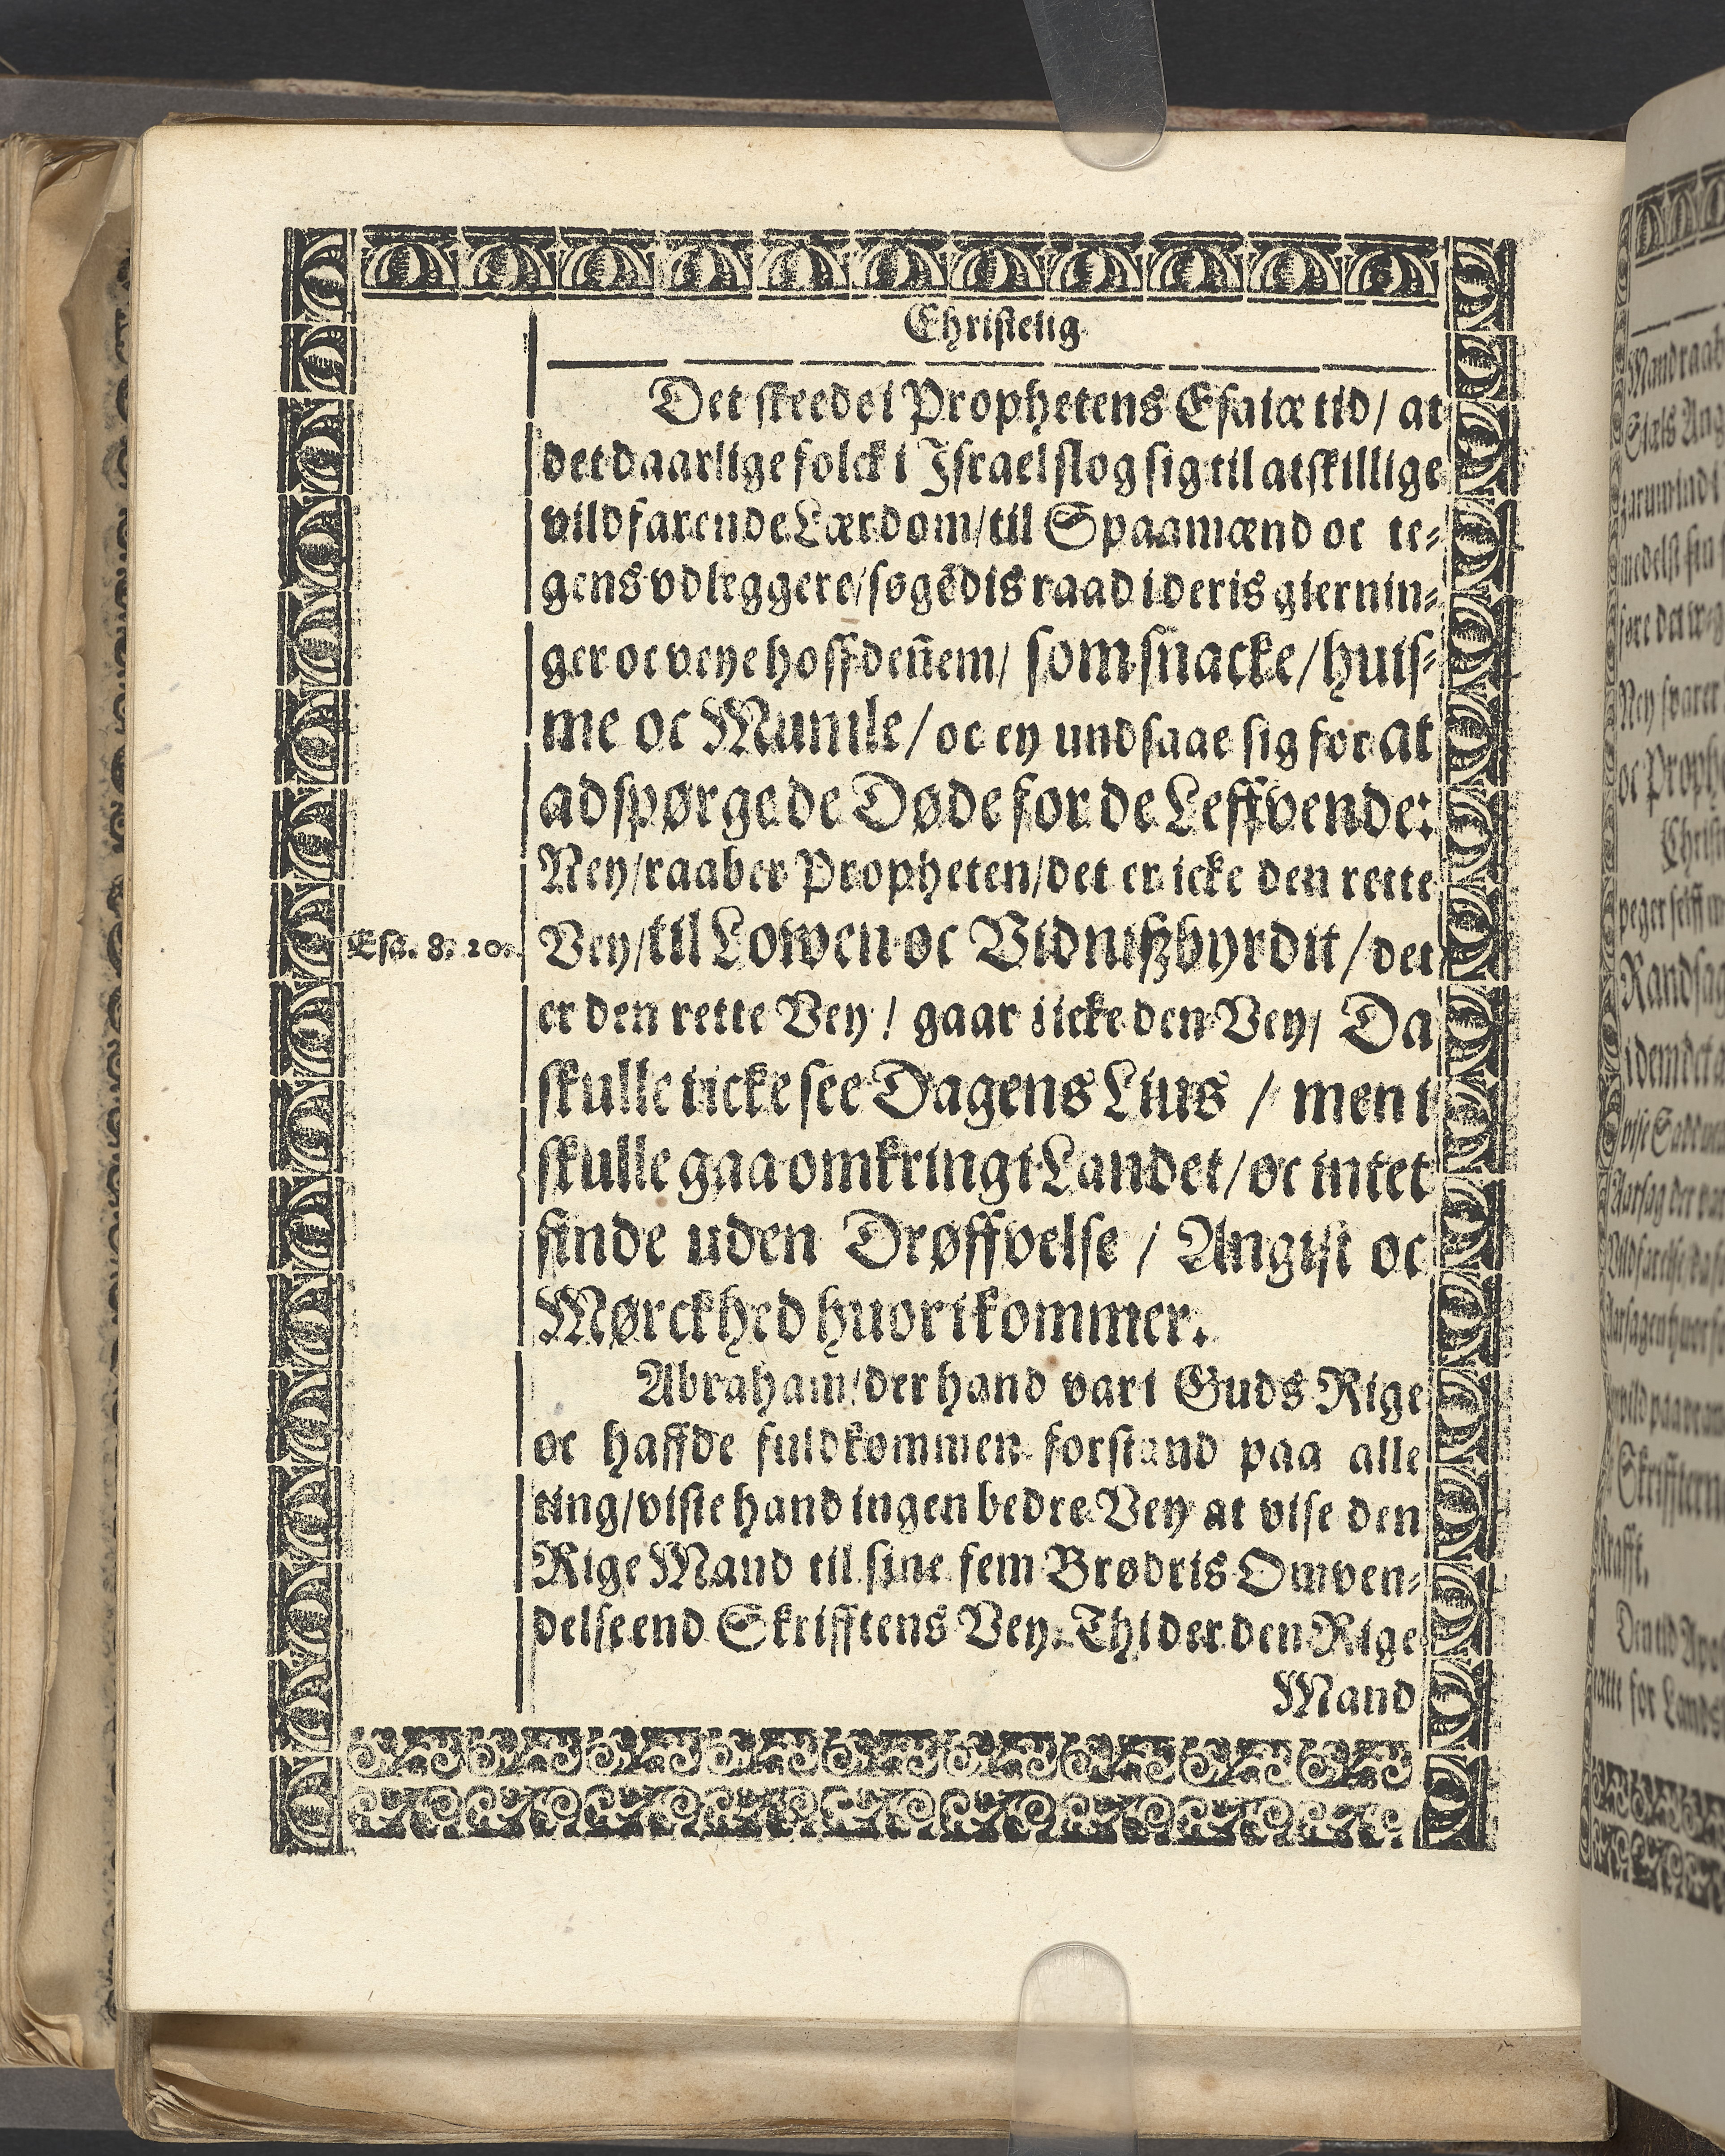 Christelig
Det skeede i Prophetens Esaiæ tid / at
det daarlige folck i Israel slog sig til atskillige
vildfarende Lærdom / til Spaamænd oc te⸗
gens vdleggere / søgẽdis raad i deris giernin⸗
ger oc veye hoff deñem / som snacke / huis⸗
me oc Mumle / oc ey undsaae sig for at
adspørge de Døde for de Leffvende:
Ney / raaber Propheten / det er icke den rette
Esa. 8. 20. Vey / til Lowen oc Vidnißbyrdit / det
er den rette Vey / gaar i icke den Vey / Da
skulle i icke see Dagens Lius / men i
skulle gaa omkring i Landet / oc intet
finde uden Drøffvelse / Angist oc
Mørckhed huor i kommer.
Abraham / der hand var i Guds Rige
oc haffde fuldkommen forstand paa alle
ting / viste hand ingen bedre Vey at vise den
Rige Mand til sine fem Brødris Omven⸗
delse end Skrifftens Vey. Thi der den Rige
Mand